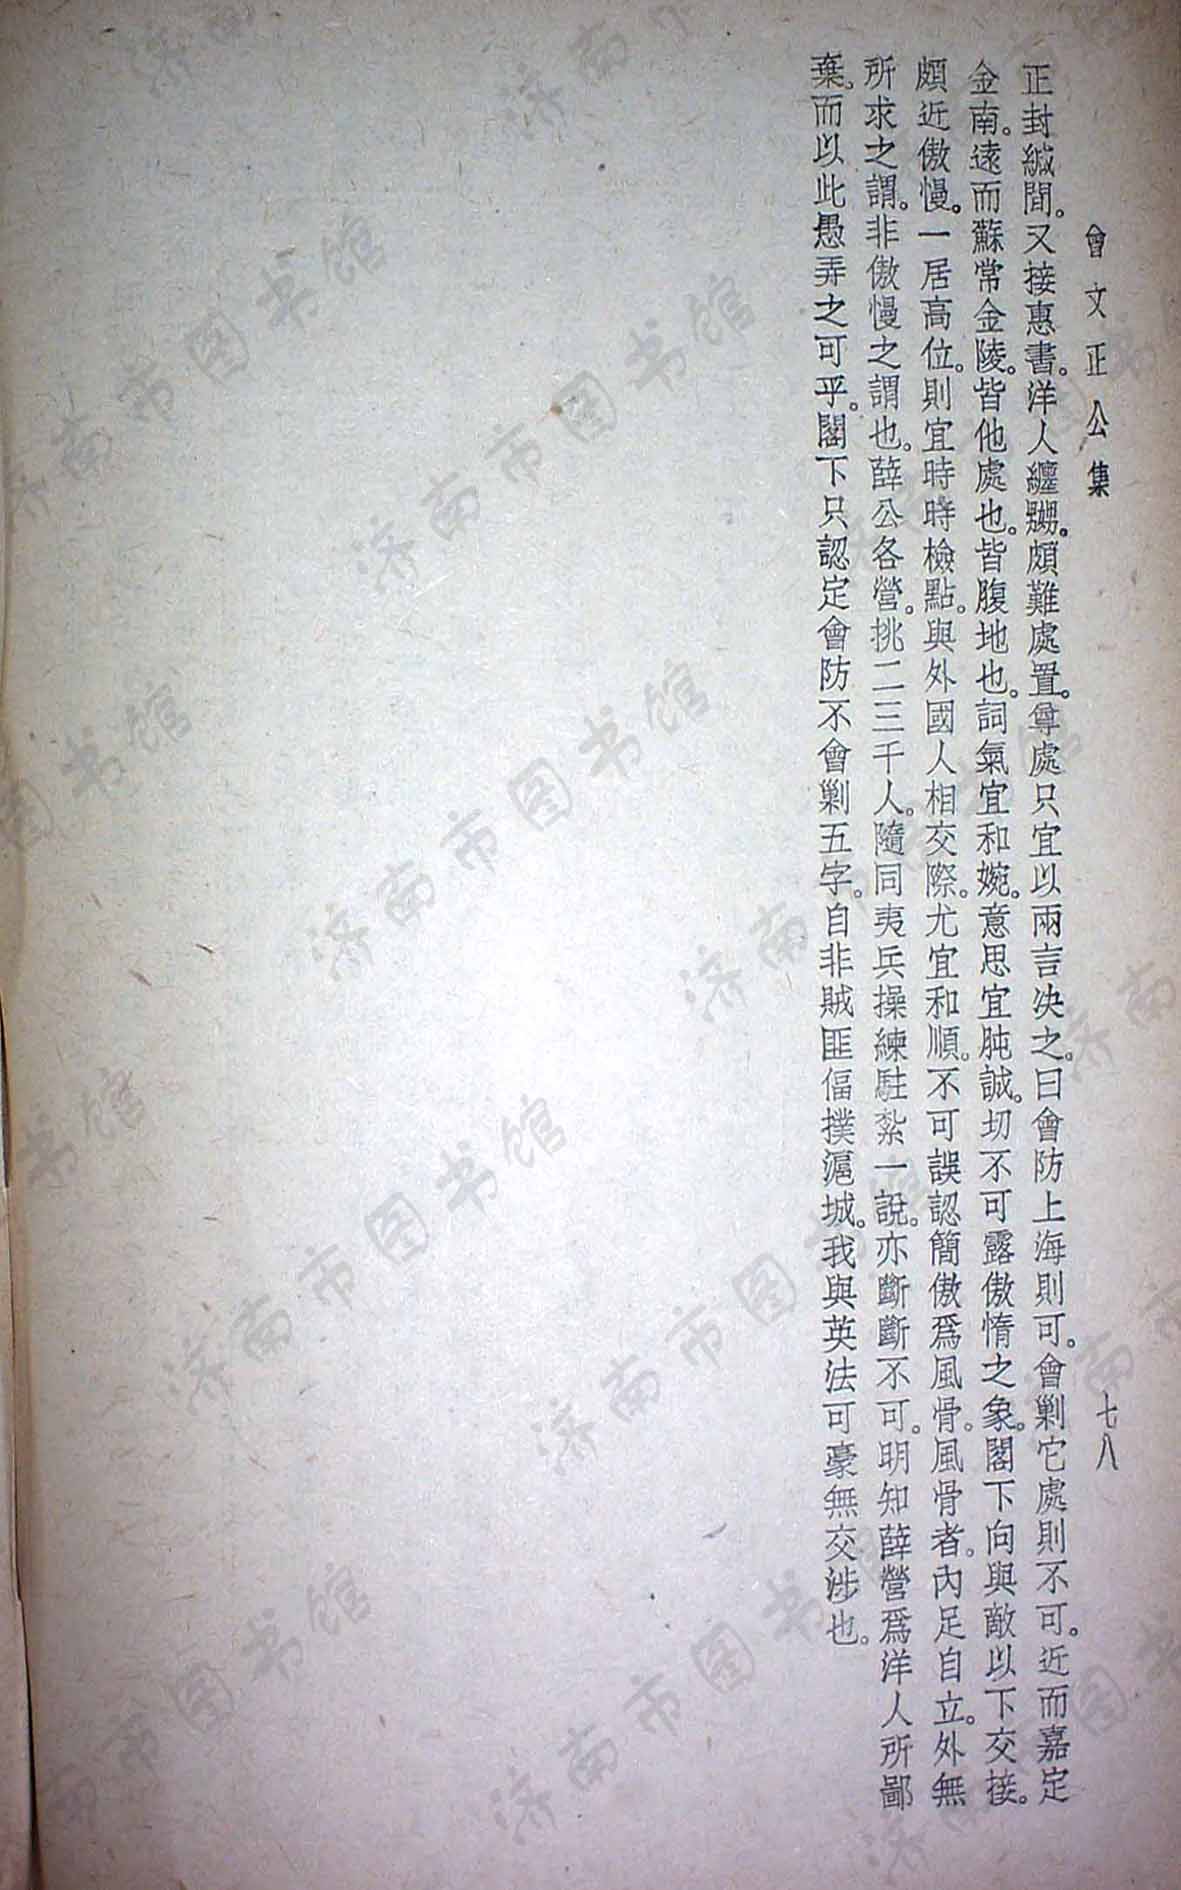 曾文正公集
七八
正封緘間。又接惠書。洋人纏嬲。頗難處置。尊處只宜以兩言决之。曰會防上海則可。會剿它處則不可。近而嘉定
金南。遠而蘇常金陵。皆他處也。皆腹地也。詞氣宜和婉。意思宜肫誠。切不可露傲惰之象。閣下向與敵以下交接。
頗近傲慢。一居高位。則宜時時檢點。與外國人相交際。尤宜和順。不可誤認簡傲爲風骨。風骨者。內足自立。外無
所求之謂。非傲慢之謂也。薛公各營。挑二三千人。隨同夷兵操練駐紮一說。亦斷斷不可。明知薛營爲洋人所鄙
棄。而以此愚弄之可乎。閣下只認定會防不會剿五字。自非賊匪偪撲滬城。我與英法可豪無交涉也。
济南市图书馆